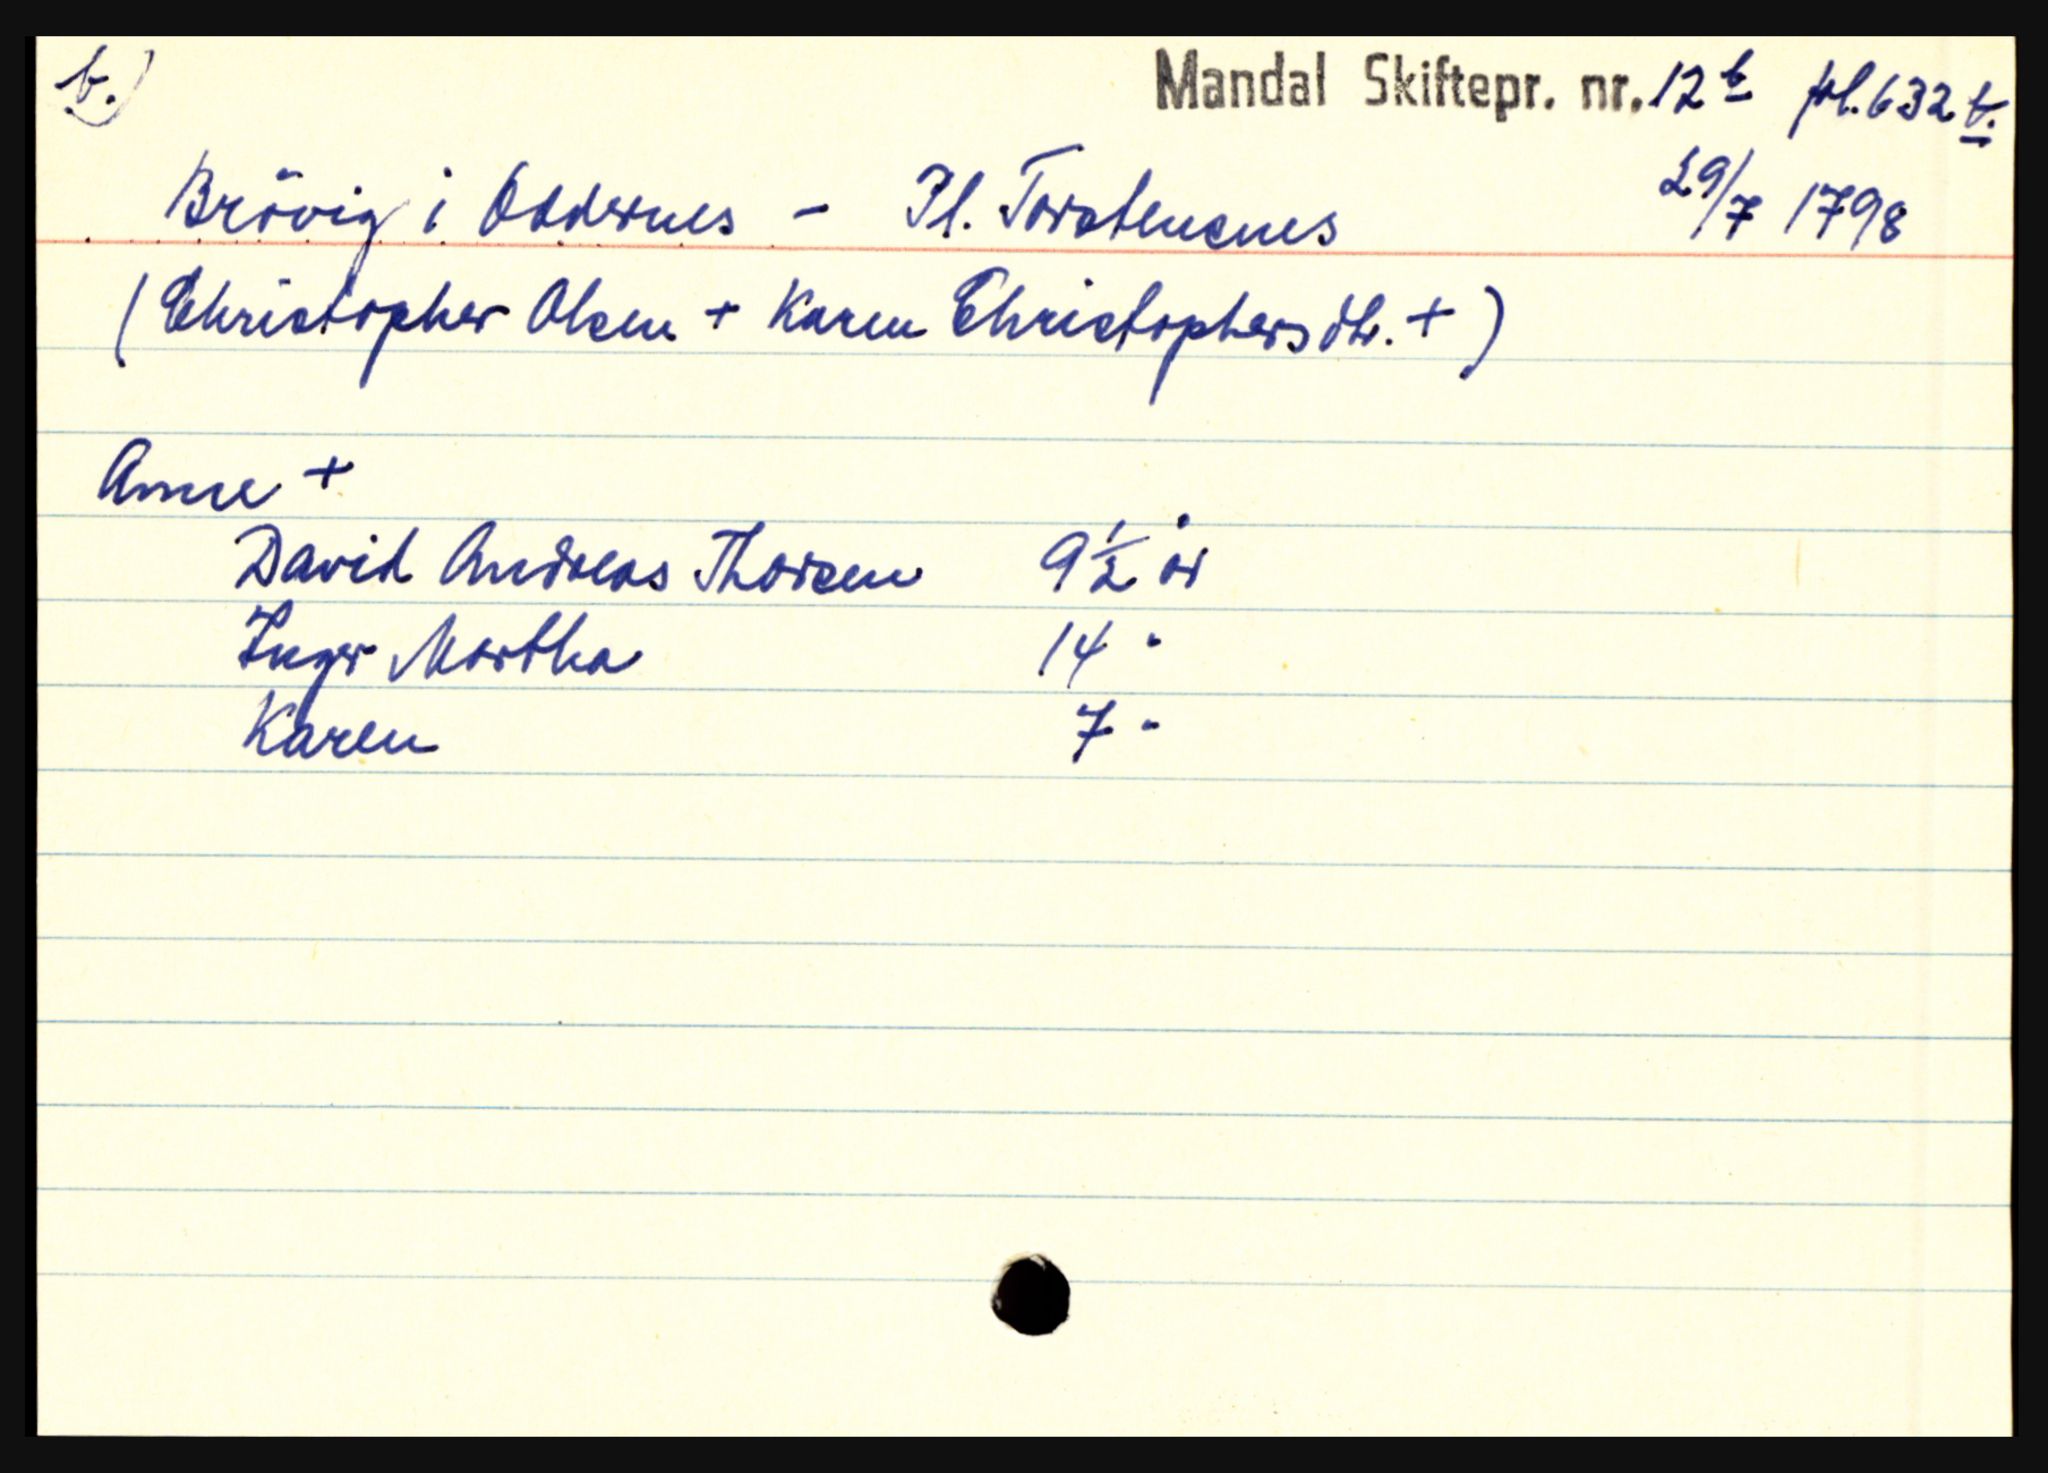 b.) Mandal Skiftepr. nr. 12 b fol. 632 b.
Brövig i Oddernes - Pl. Torstensnes 29/7 1798
(Christopher Olsen + Karen Christophersdtr. +)
Anne +
David Andreas Thorsen 9½ år
Inger Martha 14 "
Karen 7 "